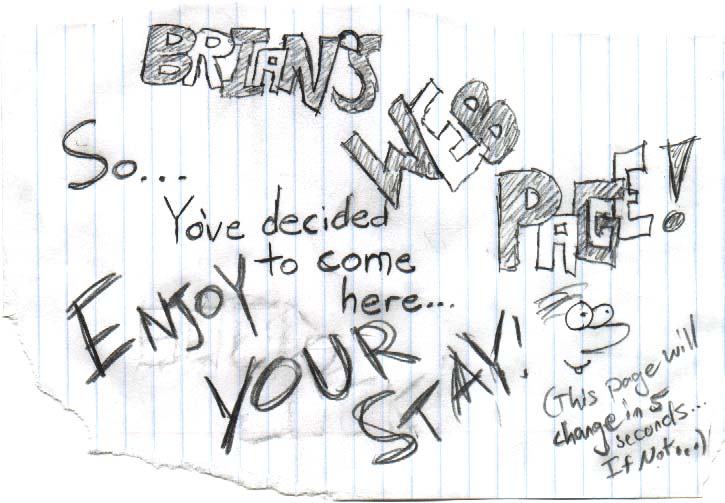 BRIAN'S
WEB
PAGE!
So...
Yo'ove decided
to come
here...
ENJOY
YOUR
STAY!
(This page will
change in 5
seconds...
If Not...)